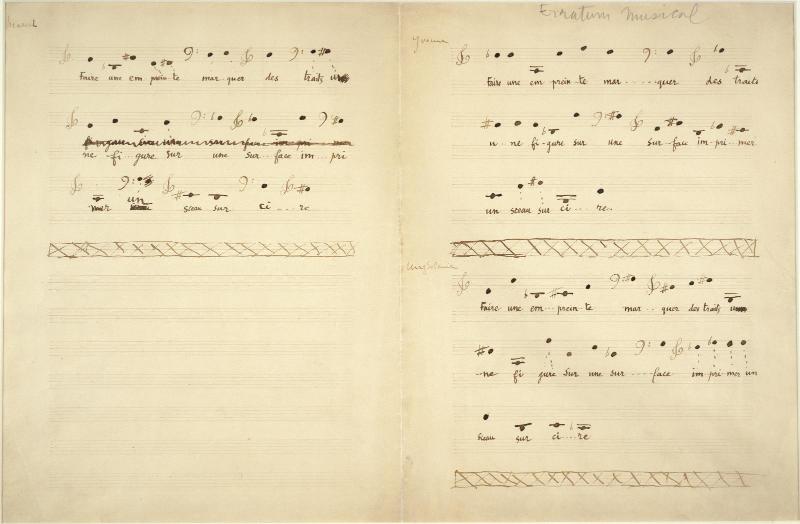 Marcel
Faire une em prein-te mar-quer des traits
ne-fi-gure sur une sur-face im-pri
mer un sceau sur ci....re
Erratum Musical
Yvonne
Faire une em prein-te mar-----quer des traits
u-ne fi-gure sur une sur-face im-pri-mer
un sceau sur ci...re.
Magdeleine
Faire une em...prein-te mar...quer des traits
-ne fi gure sur une sur----face im-pri mer un
sceau sur ci...re